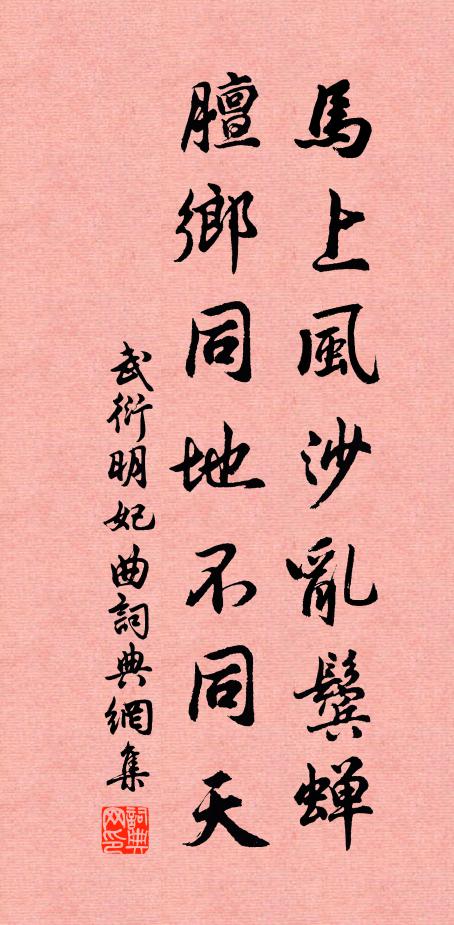 馬上風沙亂鬓蝉
膻鄉同地不同天
武衍明妃曲詞典網集
詞典网印